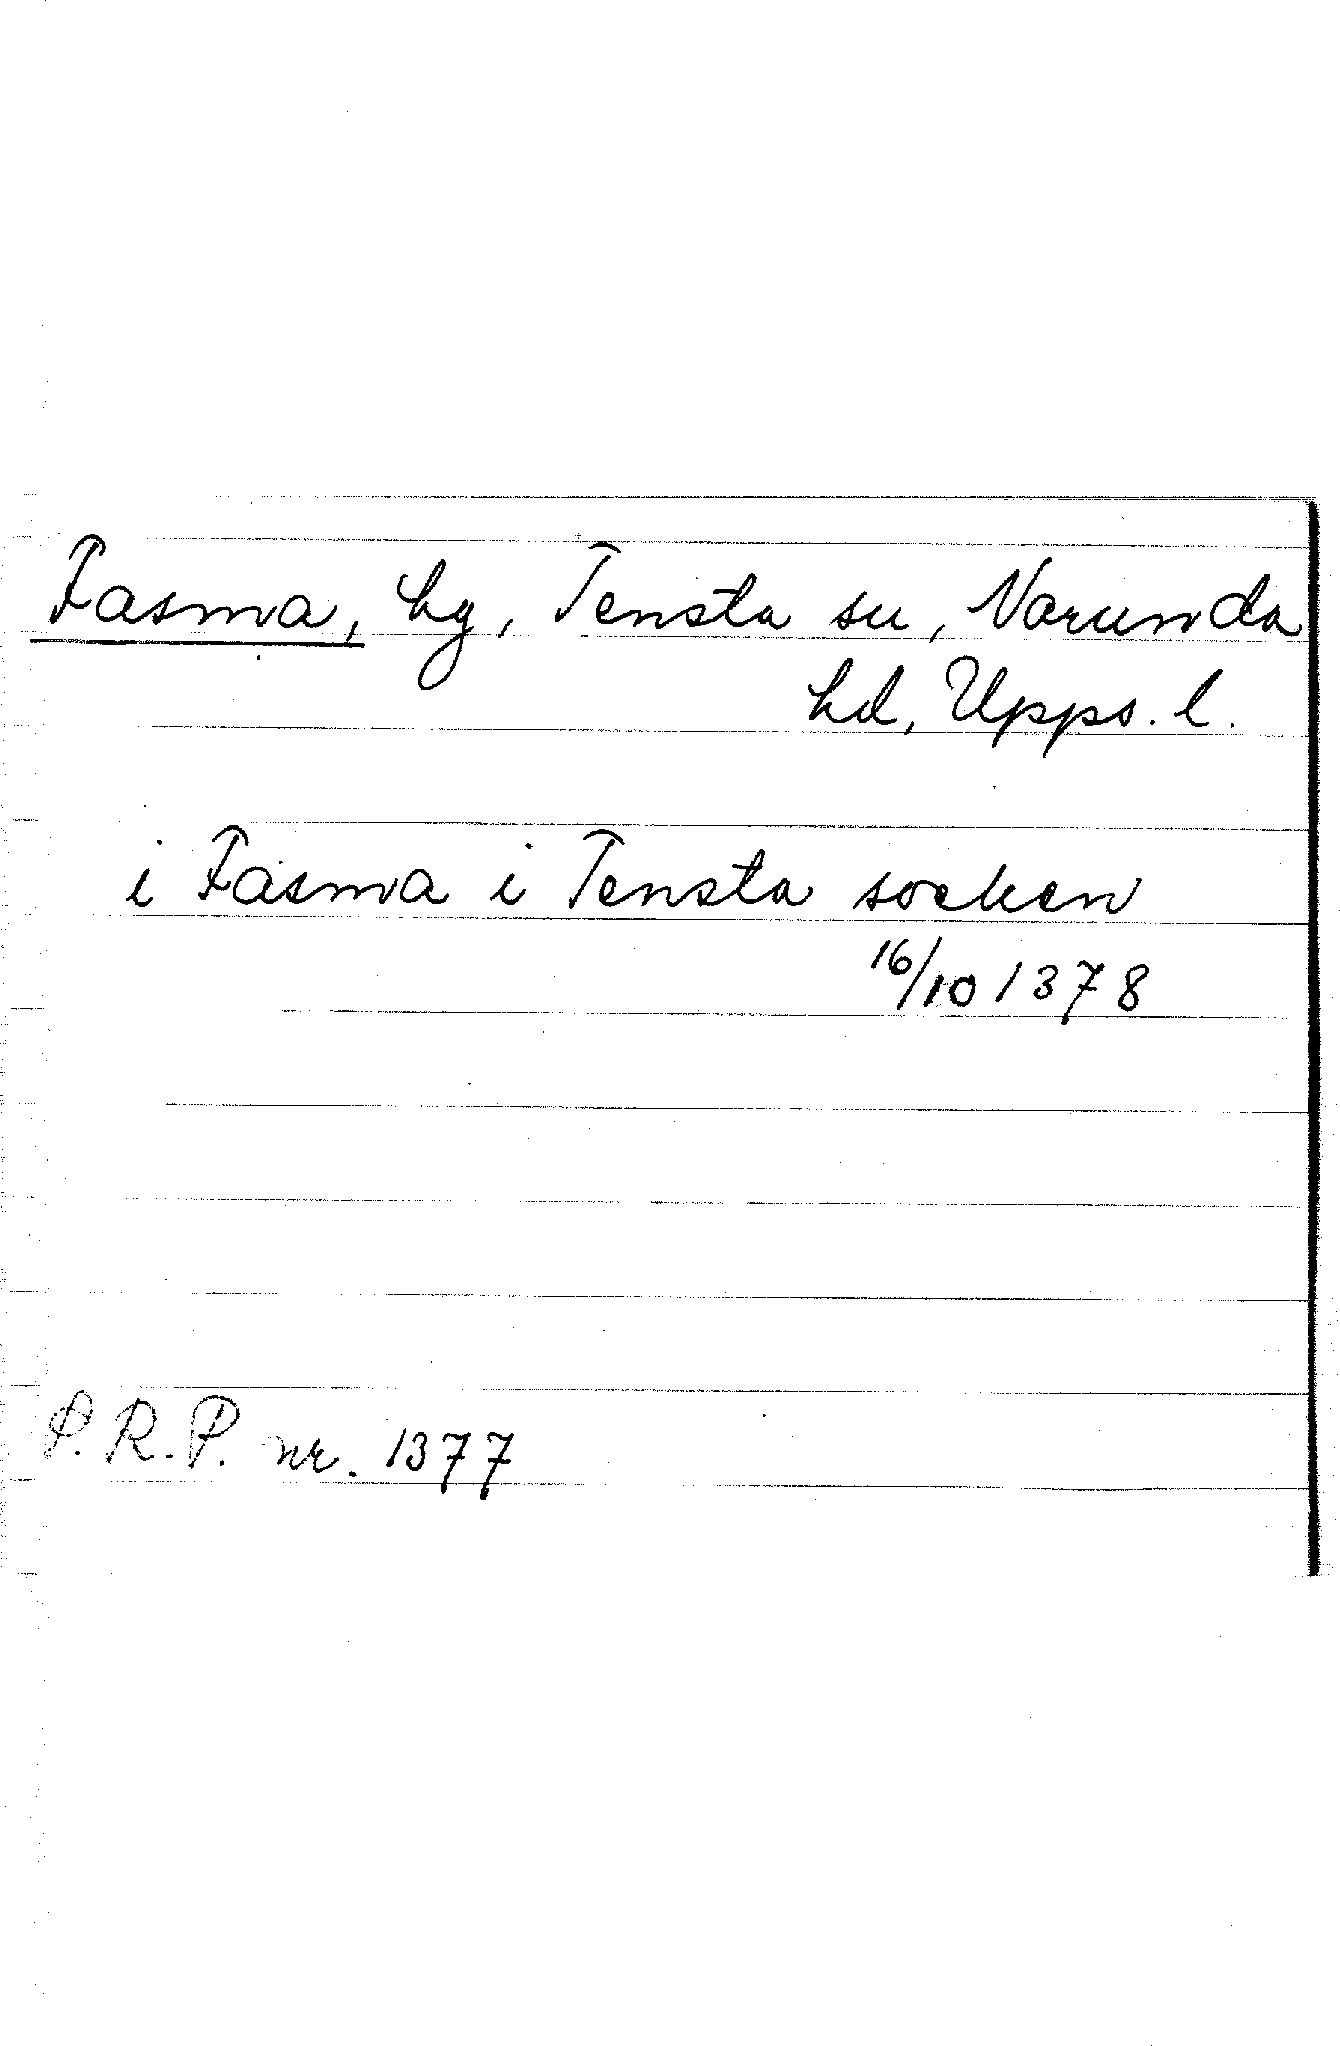 Fasma, by, Tensta sn, Norunda
hd, Upps. l.
i Fasma i Tensta socken
16/10 1378
S.R.P. nr. 1377